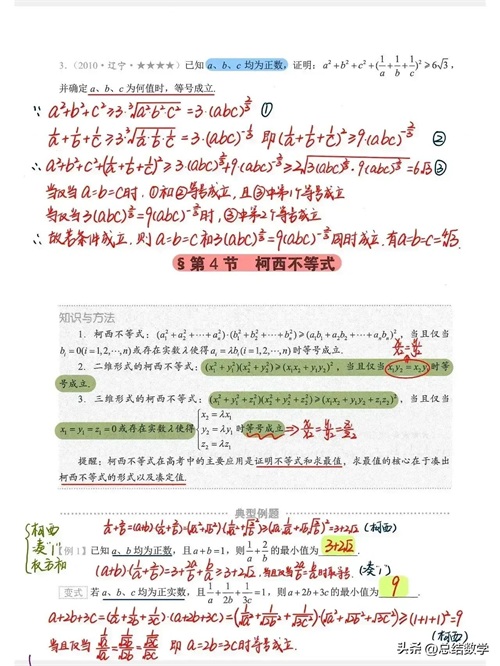 3.（2010·辽宁·★★★★）已知 a、b、c 均为正数，证明：a²+b²+c²+(1/a+1/b+1/c)²≥6√3，
并确定 a、b、c 为何值时，等号成立.
∵ a²+b²+c²≥3·∛(a²·b²·c²)=3·(abc)^(2/3) ①
1/a+1/b+1/c≥3·∛(1/a·1/b·1/c)=3·(abc)^(-1/3) 即(1/a+1/b+1/c)²≥9·(abc)^(-2/3) ②
∴ a²+b²+c²+(1/a+1/b+1/c)²≥3·(abc)^(2/3)+9·(abc)^(-2/3)≥2√(3(abc)^(2/3)·9(abc)^(-2/3))=6√3 ③
当仅当 a=b=c时，①和②等号成立，且③中第1个等号成立
当仅当3(abc)^(2/3)=9(abc)^(-2/3)时，③中第2个等号成立
∴ 故若条件成立，则a=b=c和3(abc)^(2/3)=9(abc)^(-2/3)同时成立，有a=b=c=∜3.
§第4节 柯西不等式
知识与方法
1. 柯西不等式：(a₁²+a₂²+⋯+aₙ²)·(b₁²+b₂²+⋯+bₙ²)≥(a₁b₁+a₂b₂+⋯+aₙbₙ)²，当且仅当
bᵢ=0(i=1,2,⋯,n)或存在实数λ使得aᵢ=λbᵢ(i=1,2,⋯,n)时等号成立.
2. 二维形式的柯西不等式：(x₁²+y₁²)(x₂²+y₂²)≥(x₁x₂+y₁y₂)²，当且仅当x₁y₂=x₂y₁时等
号成立.
3. 三维形式的柯西不等式：(x₁²+y₁²+z₁²)(x₂²+y₂²+z₂²)≥(x₁x₂+y₁y₂+z₁z₂)²，当且仅当
x₁=y₁=z₁=0或存在实数λ使得{x₂=λx₁ y₂=λy₁ z₂=λz₁时等号成立⇒x₁/x₂=y₁/y₂=z₁/z₂
提醒：柯西不等式在高考中的主要应用是证明不等式和求最值，求最值的核心在于凑出
柯西不等式的形式以及凑定值.
典型例题
柯西
凑"1"
权方和
1/a+2/b=(a+b)(1/a+2/b)=(√a²+√b²)(√(1/a)²+√(2/b)²)≥(√a·√(1/a)+√b·√(2/b))²=3+2√2 (柯西)
【例1】已知a、b均为正数，且a+b=1，则1/a+2/b的最小值为 3+2√2 .
(a+b)(1/a+2/b)=3+2a/b+b/a≥3+2√2，当且仅当2a/b=b/a时取等号. (凑1)
变式 若a、b、c均为正实数，且1/a+1/2b+1/3c=1，则a+2b+3c的最小值为 9 .
a+2b+3c=(1/a+1/2b+1/3c)·(a+2b+3c)=(√(1/a)²+√(1/2b)²+√(1/3c)²)(√a²+√2b²+√3c²)≥(1+1+1)²=9
(柯西)
即 a=2b=3c时等号成立.
头条 @总结数学